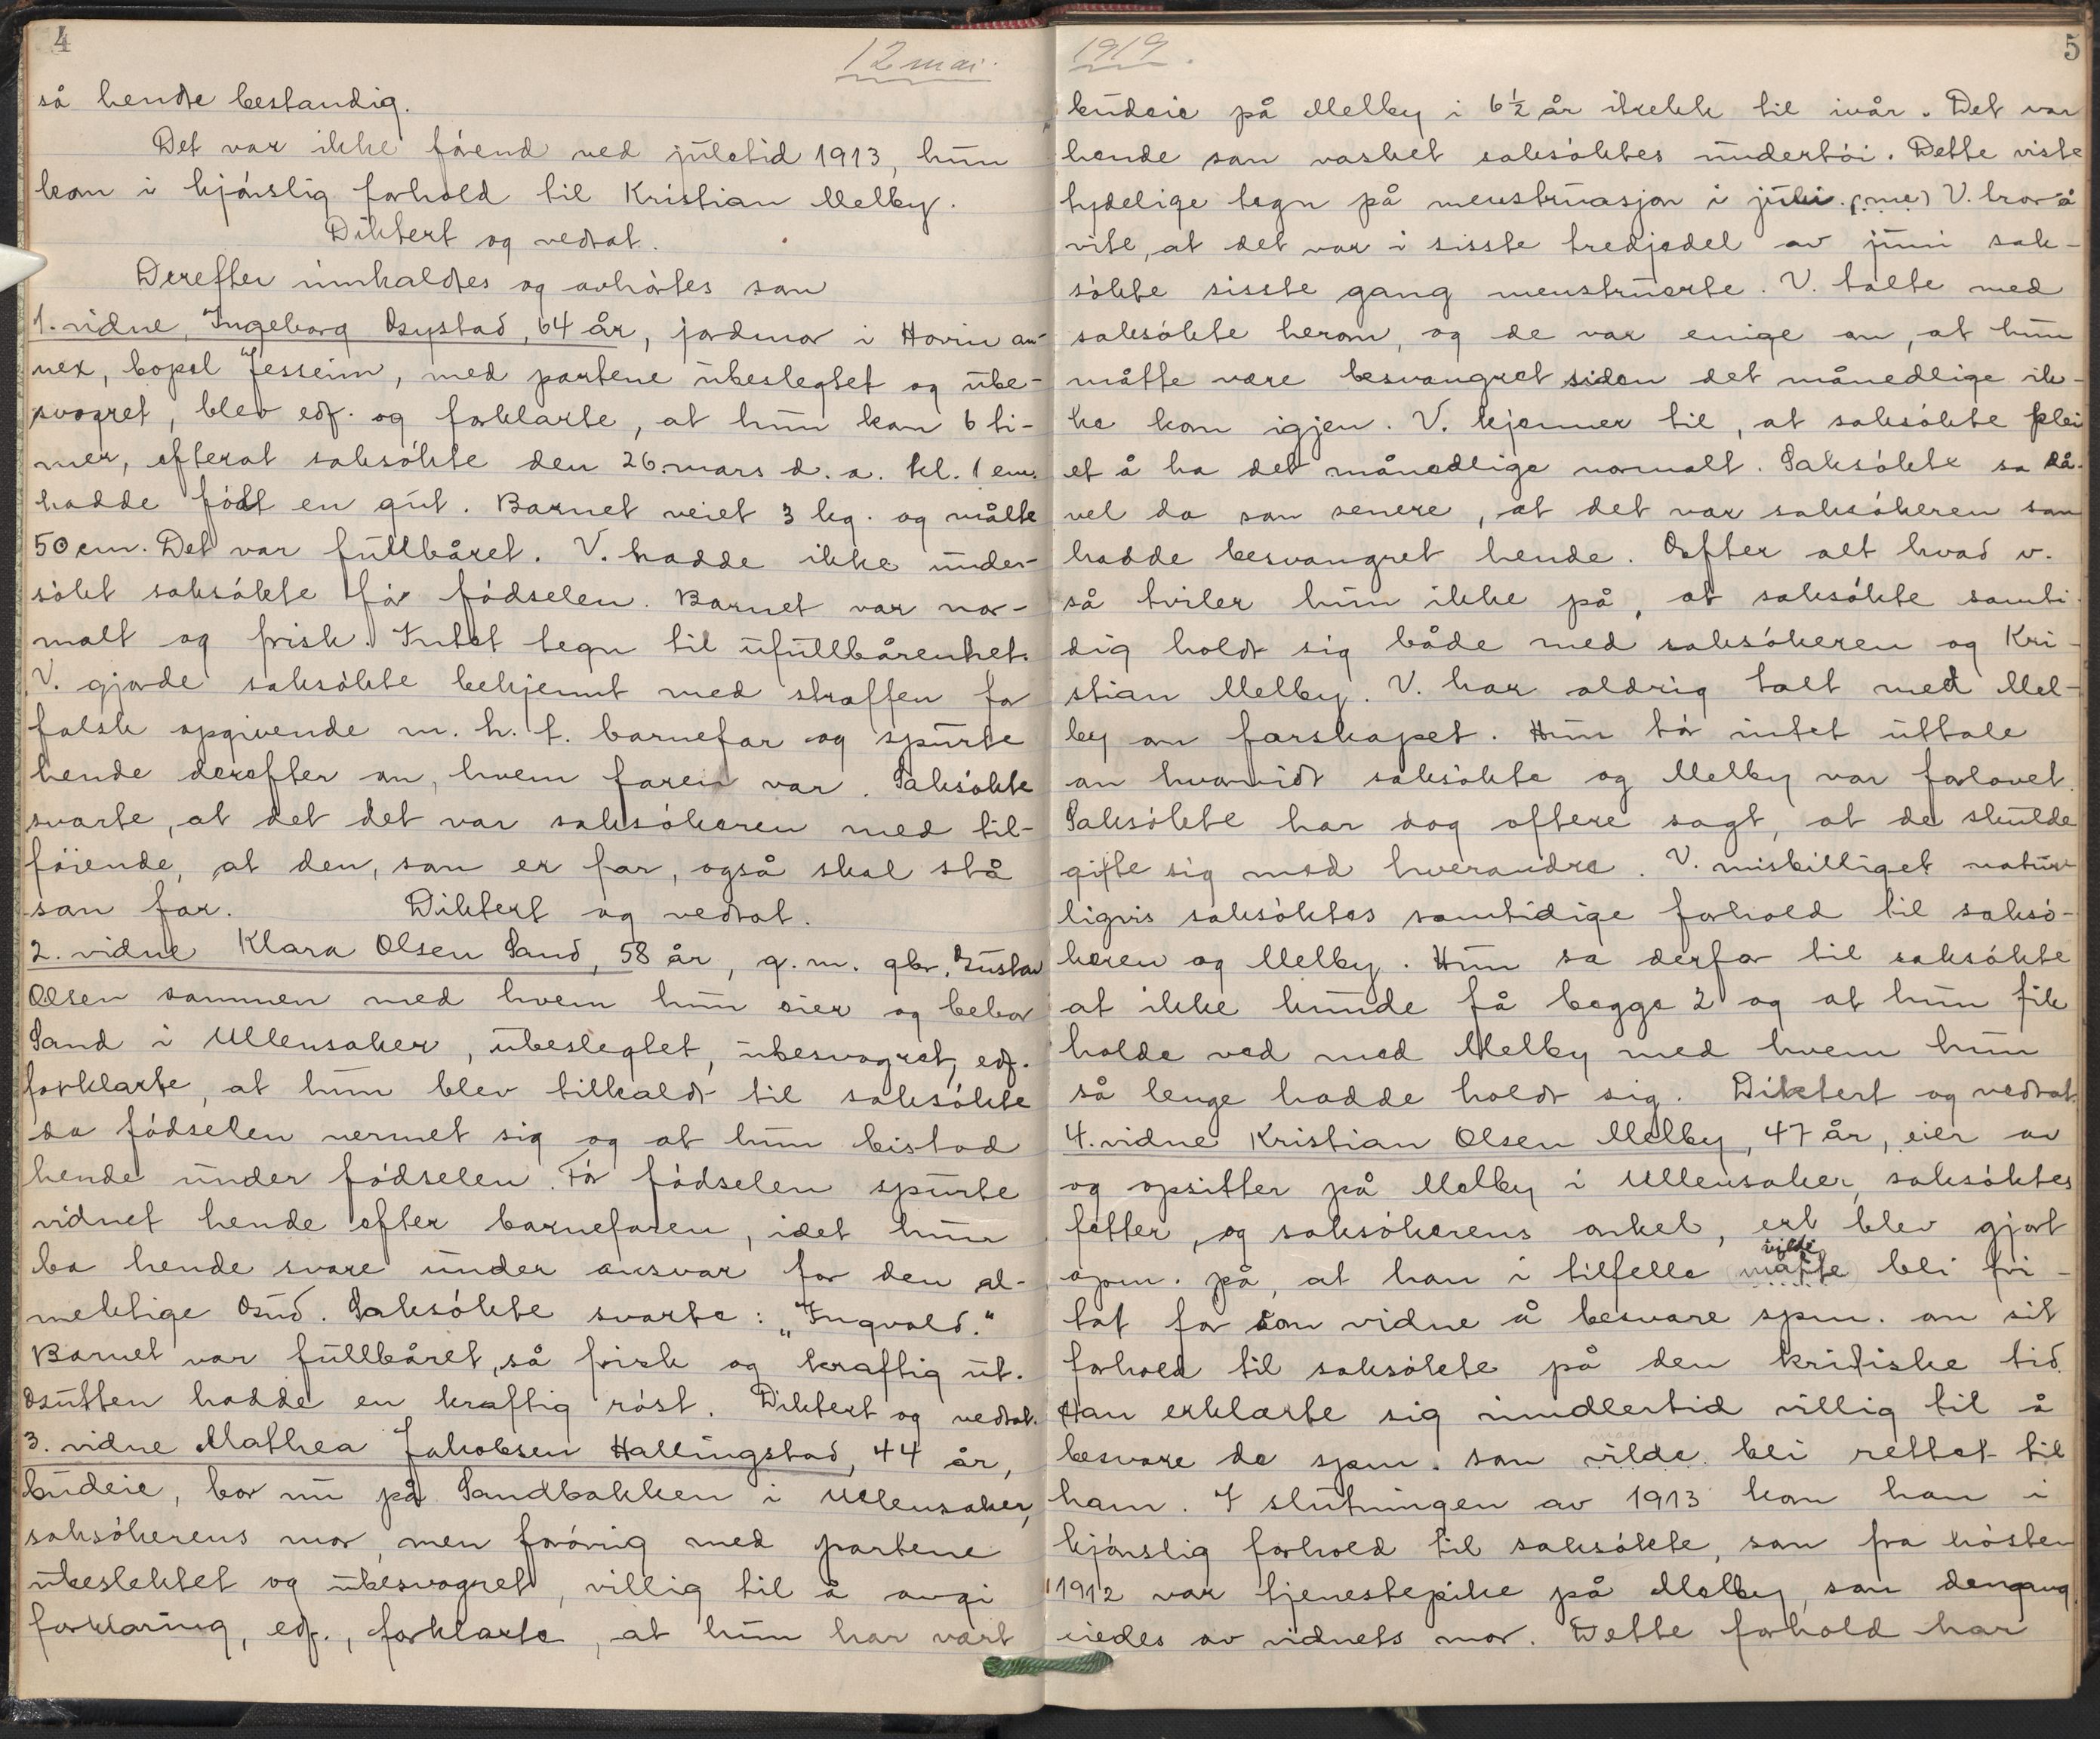 4
12 mai.
så hendte bestandig.
Det var ikke førend ved juletid 1913, hun
kom i kjønslig forhold til Kristian Melby.
Diktert og vedtat.
Derefter innkaldtes og avhørtes som
1. vidne, Ingeborg Gystad, 64 år, jordmor i Hovin an-
nex, bopel Jessheim, med partene ubeslegtet og ube-
svogret, blev edf. og forklarte, at hun kom 6 ti-
mer, efterat saksøkte den 26. mars d. a. kl. 1 em.
hadde født en gut. Barnet veiet 3 kg. og målte
50 cm. Det var fullbåret. V. hadde ikke under-
søkt saksøkte før fødselen. Barnet var nor-
malt og frisk. Intet tegn til ufullbårenhet.
V. gjorde saksøkte bekjennt med straffen for
falsk opgivende m. h. t. barnefar og spurte
hende derefter om, hvem faren var. Saksøkte
svarte, at det det var saksøkeren med til-
føiende, at den, som er far, også skal stå
som far. Diktert og vedtat.
2. vidne Klara Olsen Sand, 58 år, g. m. gbr. Gustav
Olsen sammen med hvem hun eier og bebor
Sand i Ullensaker, ubeslegtet, ubesvogret, edf.
forklarte, at hun blev tilkaldt til saksøkte
da fødselen nermet sig og at hun bistod
hende under fødselen. Før fødselen spurte
vidnet hende efter barnefaren, idet hun
ba hende svare under ansvar for den al-
mektige Gud. Saksøkte svarte: „Ingvald."
Barnet var fullbåret, så frisk og kraftig ut.
Gutten hadde en kraftig røst. Diktert og vedtat.
3. vidne Mathea Jakobsen Hallingstad, 44 år,
budeie, bor nu på Sandbakken i Ullensaker,
saksøkerens mor, men forøvrig med partene
ubeslektet og ubesvogret, villig til å avgi
forklaring, edf., forklarte, at hun har vært
1919.
5
budeie på Melby i 6½ år ikekk til ivår. Det var
hende som vasket saksøktes undertøi. Dette viste
tydelige tegn på menstruasjon i juli. (me) V. tror å
vite, at det var i sisste tredjedel av juni sak-
søkte sisste gang menstruerte. V. talte med
saksøkte herom, og de var enige om, at hun
måtte være besvangret siden det månedlige ik-
ke kom igjen. V. kjenner til, at saksøkte plei
et å ha det månedlige normalt. Saksøkte sa så-
vel da som senere, at det var saksøkeren som
hadde besvangret hende. Efter alt hvad v.
så tviler hun ikke på, at saksøkte samti-
dig holdt sig både med saksøkeren og Kri-
stian Melby. V. har aldrig talt med Mel-
by om farskapet. Hun tør intet uttale
om hvorvidt saksøkte og Melby var forlovet.
Saksøkte har dog oftere sagt, at de skulde
gifte sig med hverandre. V. misbilliget natur-
ligvis saksøktes samtidige forhold til saksø-
keren og Melby. Hun sa derfor til saksøkte
at ikke kunde få begge 2 og at hun fik
holde ved med Melby med hvem hun
så lenge hadde holdt sig. Diktert og vedtat.
4. vidne Kristian Olsen Melby, 47 år, eier av
og opsitter på Melby i Ullensaker, saksøktes
fetter, og saksøkerens onkel, erl blev gjort
opm. på, at han i tilfelle (måtte) vilde bli fri-
tat for som vidne å besvare spm. om sit
forhold til saksøkte på den kritiske tid.
Han erklærte sig imidlertid villig til å
besvare de spm. som vilde bli rettet til
ham. I slutningen av 1913 kom han i
kjønslig forhold til saksøkte, som fra høsten
1912 var tjenestepike på Melby, som dengang
eiedes av vidnets mor. Dette forhold har